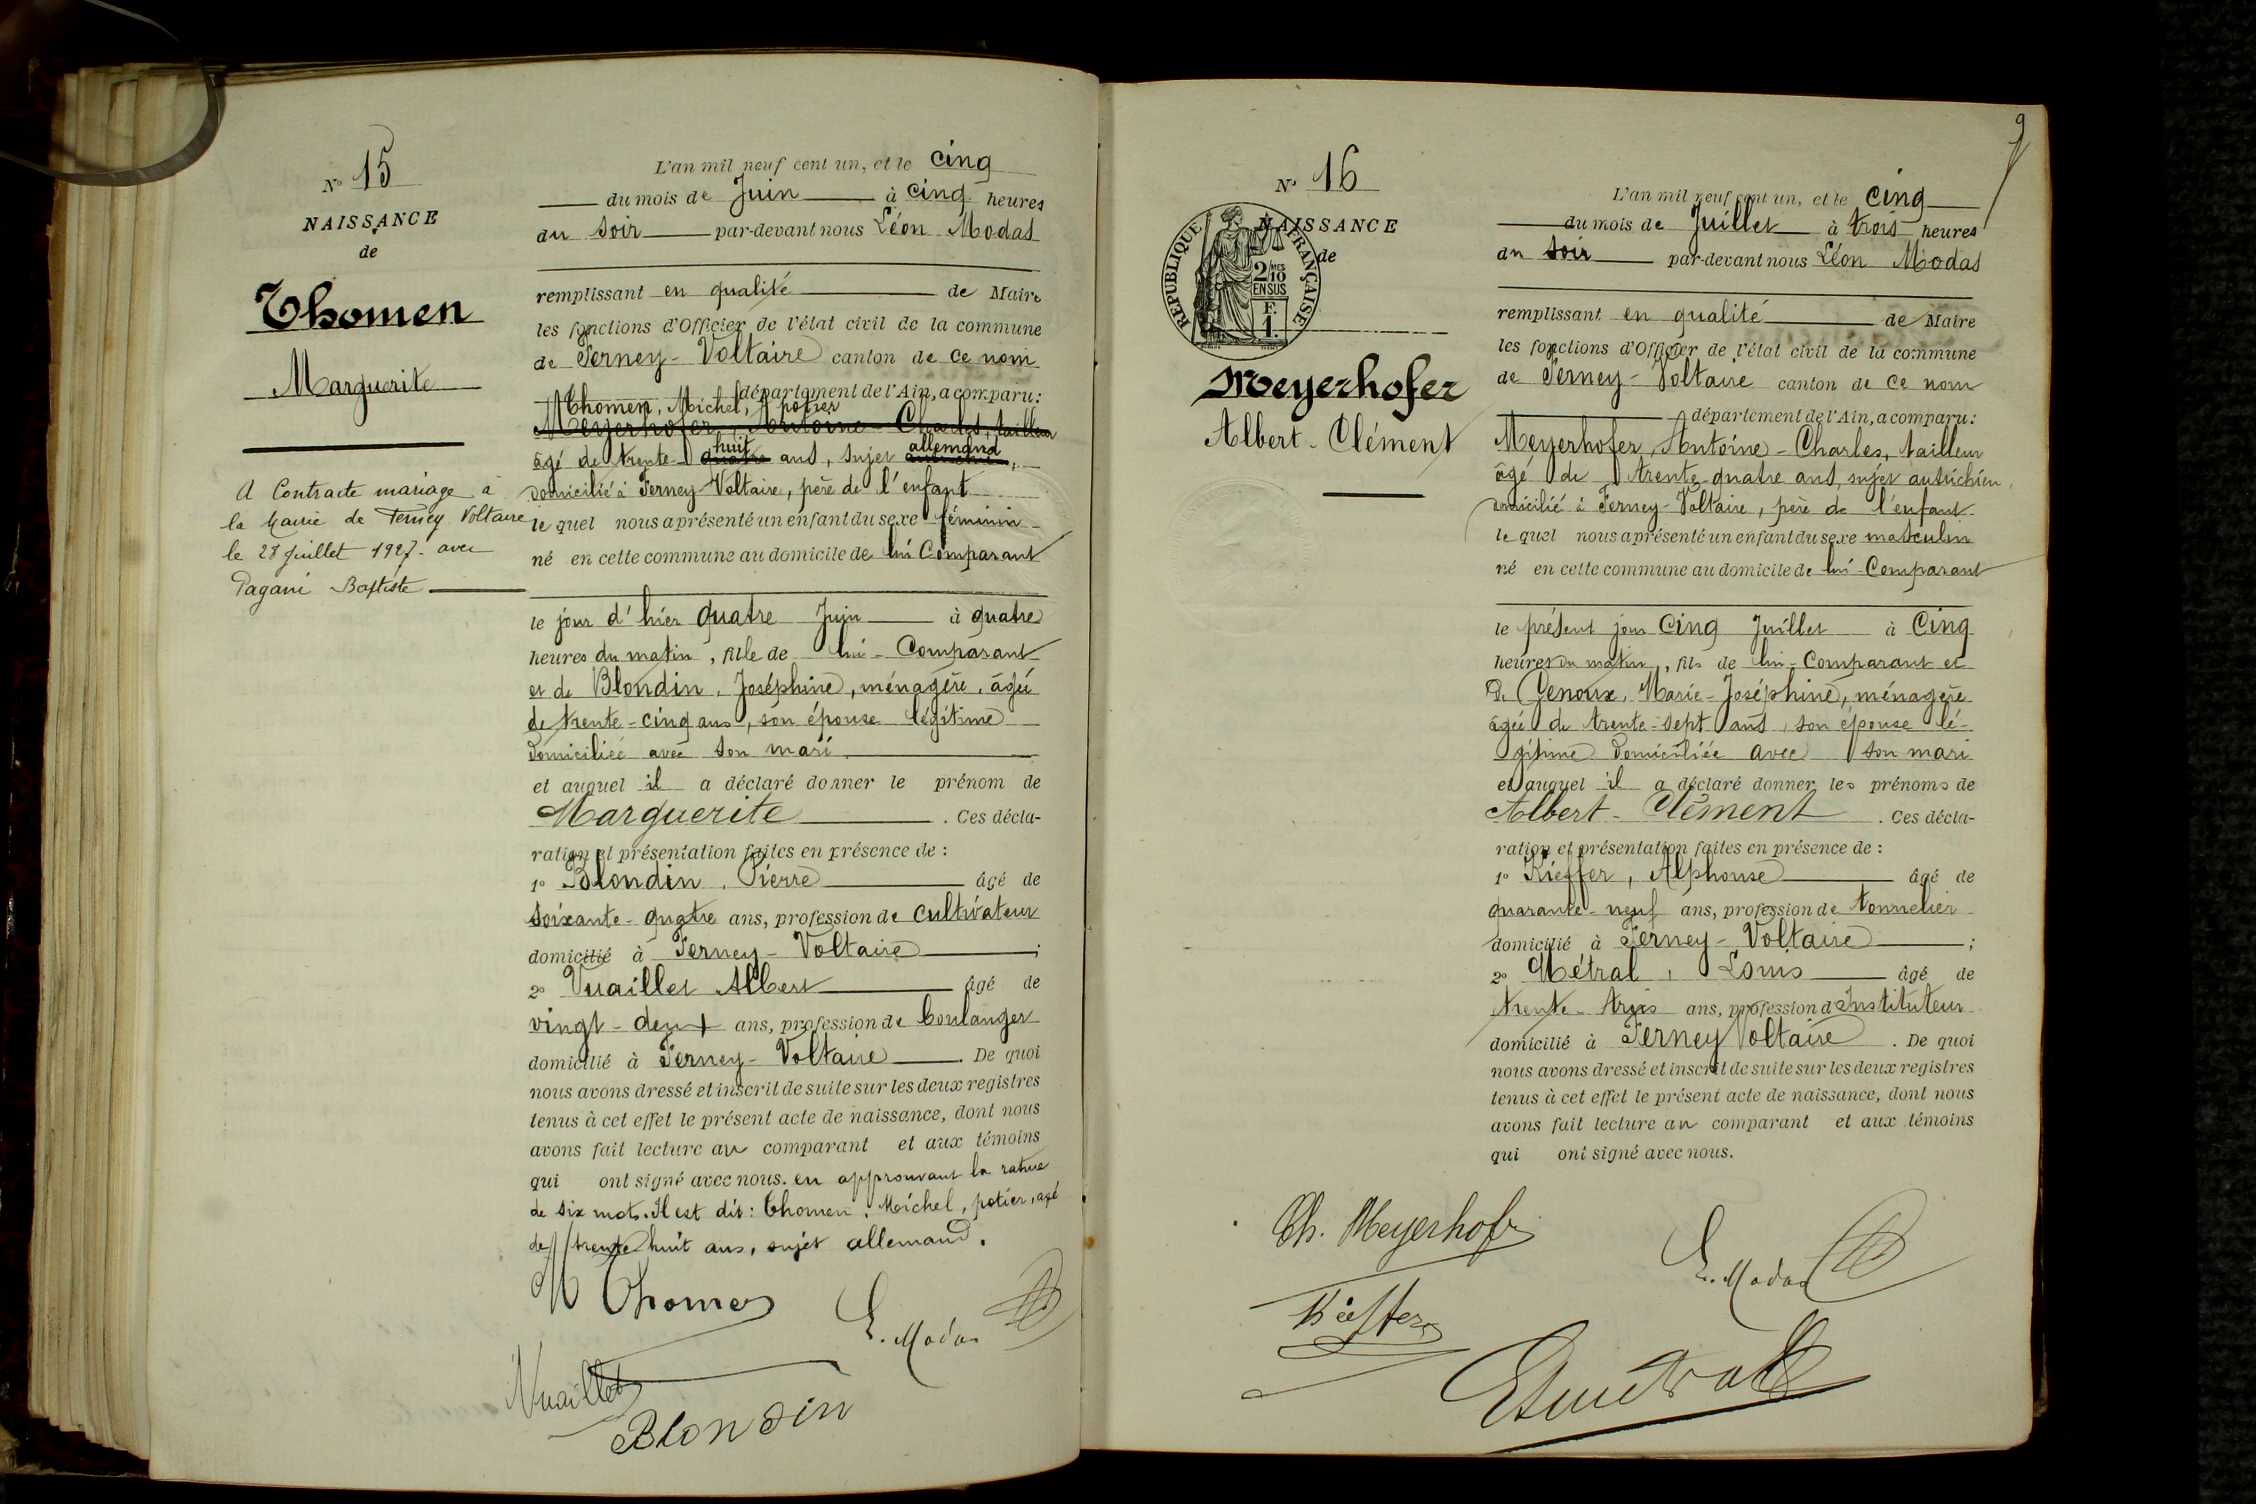 N° 15
NAISSANCE
de
Thomen
Marguerite
A Contracté mariage à
la Mairie de Ferney Voltaire
le 28 Juillet 1927. avec
Pagani Baptiste
L'an mil neuf cent un, et le cinq
du mois de Juin à cinq heures
du soir par-devant nous Léon Modas
remplissant en qualité de Maire
les fonctions d'Officier de l'état civil de la commune
de Ferney-Voltaire canton de ce nom
département de l'Ain, a comparu:
Thomen, Michel, potier
Meyerhofer, Antoine-Charles, tailleur
huit allemand
âgé de trente-quatre ans, sujet autrichien,
domicilié à Ferney-Voltaire, père de l'enfant
le quel nous a présenté un enfant du sexe féminin
né en cette commune au domicile de lui Comparant
le jour d'hier quatre Juin à quatre
heures du matin, fille de lui-Comparant
et de Blondin, Joséphine, ménagère, âgée
de trente-cinq ans, son épouse légitime
domiciliée avec son mari
et auquel il a déclaré donner le prénom de
Marguerite. Ces décla-
ration et présentation faites en présence de :
1° Blondin, Pierre âgé de
soixante-quatre ans, profession de cultivateur
domicilié à Ferney-Voltaire ;
2° Vuaillet Albert âgé de
vingt-deux ans, profession de boulanger
domicilié à Ferney-Voltaire. De quoi
nous avons dressé et inscrit de suite sur les deux registres
tenus à cet effet le présent acte de naissance, dont nous
avons fait lecture au comparant et aux témoins
qui ont signé avec nous. en approuvant la rature
de six mots. Il est dit: Thomen, Michel, potier, agé
de trente huit ans, sujet allemand.
M Thomen
L. Modas
Vuaillet
Blondin
9
N° 16
NAISSANCE
de
REPUBLIQUE FRANÇAISE
2/10 MES
EN SUS
F.
1.
Meyerhofer
Albert-Clément
L'an mil neuf cent un, et le cinq
du mois de Juillet à trois heures
du soir par-devant nous Léon Modas
remplissant en qualité de Maire
les fonctions d'Officier de l'état civil de la commune
de Ferney-Voltaire canton de ce nom
département de l'Ain, a comparu:
Meyerhofer, Antoine-Charles, tailleur
âgé de trente-quatre ans, sujet autrichien,
domicilié à Ferney-Voltaire, père de l'enfant
le quel nous a présenté un enfant du sexe masculin
né en cette commune au domicile de lui-Comparant
le présent jour Cinq Juillet à Cinq
heures du matin, fils de lui-Comparant et
de Genoux, Marie-Joséphine, ménagère
âgée de trente-sept ans, son épouse lé-
gitime domiciliée avec son mari
et auquel il a déclaré donner les prénoms de
Albert-Clément. Ces décla-
ration et présentation faites en présence de :
1° Kieffer, Alphonse âgé de
quarante-neuf ans, profession de tonnelier
domicilié à Ferney-Voltaire ;
2° Métral, Louis âgé de
trente-trois ans, profession d'Instituteur
domicilié à Ferney Voltaire. De quoi
nous avons dressé et inscrit de suite sur les deux registres
tenus à cet effet le présent acte de naissance, dont nous
avons fait lecture au comparant et aux témoins
qui ont signé avec nous.
Ch. Meyerhofer
L. Modas
Kieffer